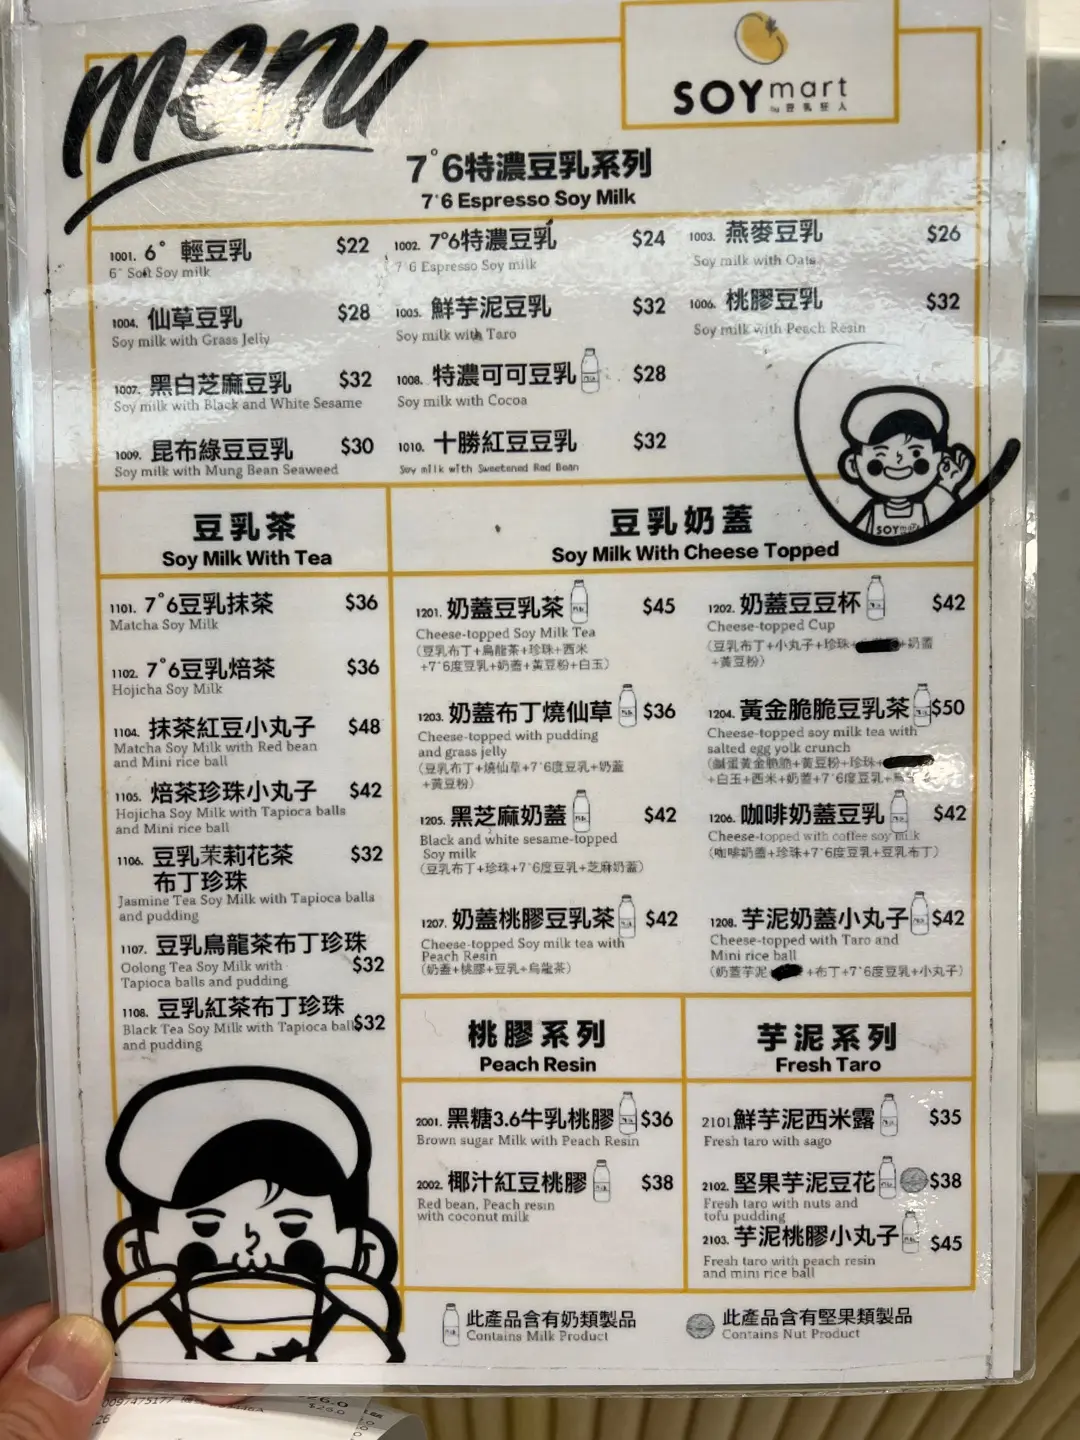 menu
SOYmart
by 豆乳狂人
7°6特濃豆乳系列
7°6 Espresso Soy Milk
1001. 6° 輕豆乳 $22
6° Soft Soy milk
1002. 7°6特濃豆乳 $24
7°6 Espresso Soy milk
1003. 燕麥豆乳 $26
Soy milk with Oats
1004. 仙草豆乳 $28
Soy milk with Grass Jelly
1005. 鮮芋泥豆乳 $32
Soy milk with Taro
1006. 桃膠豆乳 $32
Soy milk with Peach Resin
1007. 黑白芝麻豆乳 $32
Soy milk with Black and White Sesame
1008. 特濃可可豆乳 $28
Soy milk with Cocoa
1009. 昆布綠豆豆乳 $30
Soy milk with Mung Bean Seaweed
1010. 十勝紅豆豆乳 $32
Soy milk with Sweetened Red Bean
SOYmart
豆乳茶
Soy Milk With Tea
1101. 7°6豆乳抹茶 $36
Matcha Soy Milk
1102. 7°6豆乳焙茶 $36
Hojicha Soy Milk
1104. 抹茶紅豆小丸子 $48
Matcha Soy Milk with Red bean
and Mini rice ball
1105. 焙茶珍珠小丸子 $42
Hojicha Soy Milk with Tapioca balls
and Mini rice ball
1106. 豆乳茉莉花茶 $32
布丁珍珠
Jasmine Tea Soy Milk with Tapioca balls
and pudding
1107. 豆乳烏龍茶布丁珍珠
Oolong Tea Soy Milk with $32
Tapioca balls and pudding
1108. 豆乳紅茶布丁珍珠
Black Tea Soy Milk with Tapioca ball $32
and pudding
豆乳奶蓋
Soy Milk With Cheese Topped
1201. 奶蓋豆乳茶 $45
Cheese-topped Soy Milk Tea
(豆乳布丁+烏龍茶+珍珠+西米
+7°6度豆乳+奶蓋+黃豆粉+白玉)
1202. 奶蓋豆豆杯 $42
Cheese-topped Cup
(豆乳布丁+小丸子+珍珠+ +奶蓋
+黃豆粉)
1203. 奶蓋布丁燒仙草 $36
Cheese-topped with pudding
and grass jelly
(豆乳布丁+燒仙草+7°6度豆乳+奶蓋
+黃豆粉)
1204. 黃金脆脆豆乳茶 $50
Cheese-topped soy milk tea with
salted egg yolk crunch
(鹹蛋黃金脆脆+黃豆粉+珍珠+
+白玉+西米+奶蓋+7°6度豆乳+烏
1205. 黑芝麻奶蓋 $42
Black and white sesame-topped
Soy milk
(豆乳布丁+珍珠+7°6度豆乳+芝麻奶蓋)
1206. 咖啡奶蓋豆乳 $42
Cheese-topped with coffee soy milk
(咖啡奶蓋+珍珠+7°6度豆乳+豆乳布丁)
1207. 奶蓋桃膠豆乳茶 $42
Cheese-topped Soy milk tea with
Peach Resin
(奶蓋+桃膠+豆乳+烏龍茶)
1208. 芋泥奶蓋小丸子 $42
Cheese-topped with Taro and
Mini rice ball
(奶蓋芋泥+ +布丁+7°6度豆乳+小丸子)
桃膠系列
Peach Resin
2001. 黑糖3.6牛乳桃膠 $36
Brown sugar Milk with Peach Resin
2002. 椰汁紅豆桃膠 $38
Red bean, Peach resin
with coconut milk
芋泥系列
Fresh Taro
2101 鮮芋泥西米露 $35
Fresh taro with sago
2102. 堅果芋泥豆花 $38
Fresh taro with nuts and
tofu pudding
2103. 芋泥桃膠小丸子 $45
Fresh taro with peach resin
and mini rice ball
此產品含有奶類製品
Contains Milk Product
此產品含有堅果類製品
Contains Nut Product